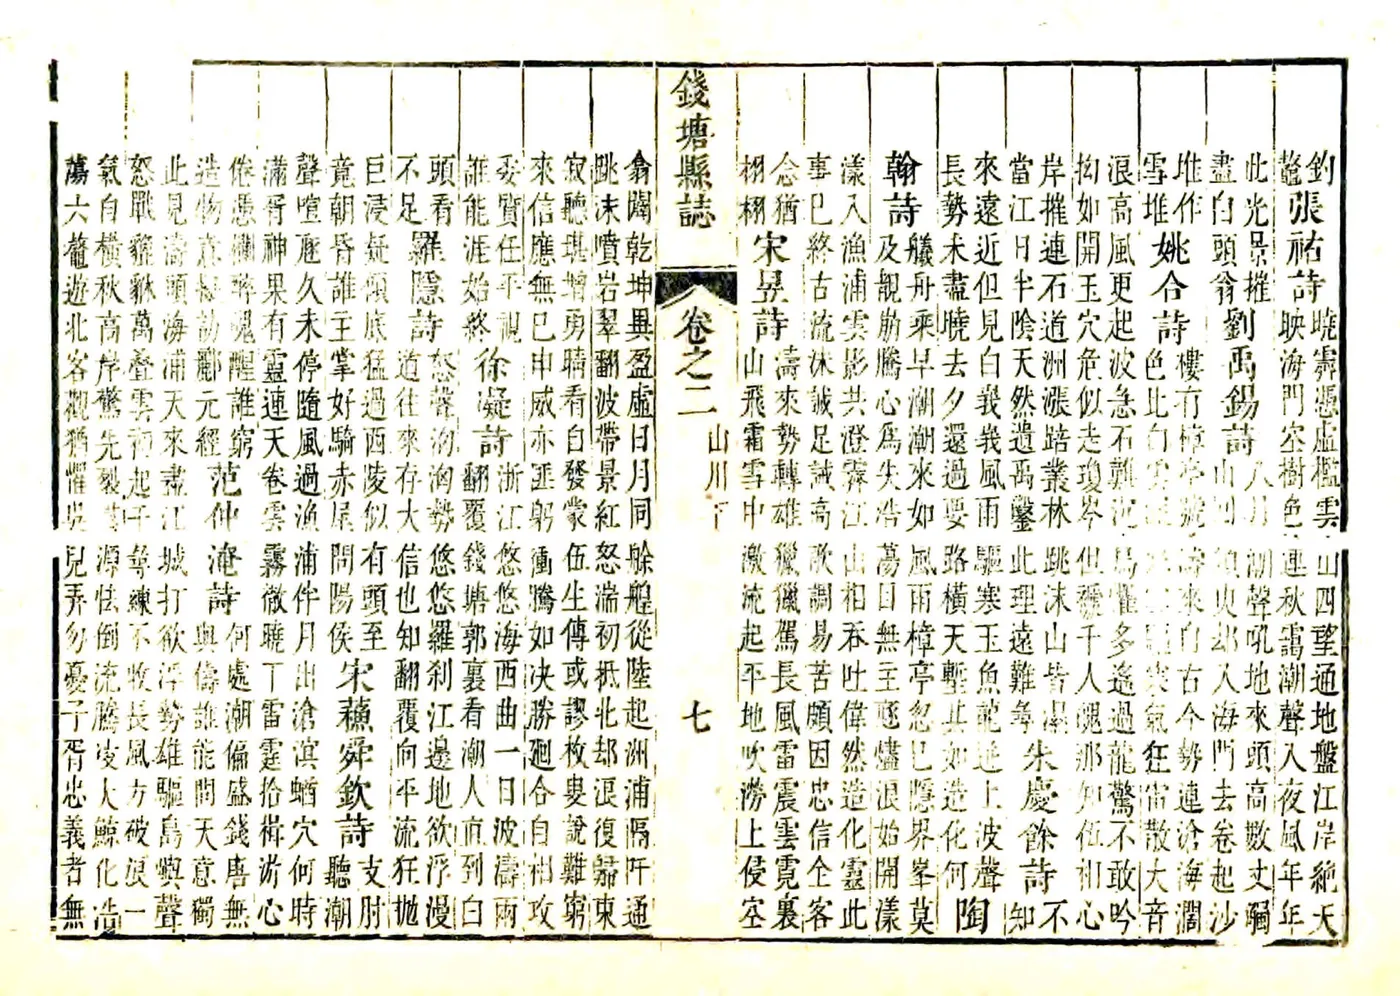 釣
鼇
張祐詩
曉霽憑虛檻雲山四望通地盤江岸絶天
映海門空樹色連秋靄潮聲入夜風年年
此光景摧
盡白頭翁
劉禹錫詩
八月潮聲吼地來頭高數丈觸
山須臾却入海門去卷起沙
堆作
雪堆
姚合詩
樓有樟亭號濤來自古今勢連滄海濶
色比白雲寒氣狂雷散大音
浪高風更起波急石難沉鳥懼多遙過龍驚不敢吟
拗如開玉穴危似走瓊岑但襯千人魄那知伍相心
岸摧連石道洲漲踣叢林跳沫山皆濕
當江日半陰天然遺禹鑿此理遠難尋
朱慶餘詩
不
知
來遠近但見白峩峩風雨驅寒玉魚龍迸上波聲
長勢未盡曉去夕還過要路橫天塹其如造化何
陶
翰詩
艤舟乘早潮潮來如風雨樟亭忽已隱界峯莫
及覩崩騰心爲失浩蕩目無主豗浪始開漾
漾入漁浦雲影共澄霽江山相吞吐偉然造化靈此
事已終古流沫誠足誡高歌調易苦頗因忠信全客
念猶
栩栩
宋昱詩
濤來勢轉雄獵獵駕長風雷震雲霓裏
山飛霜雪中激流起平地吹澇上侵空
錢塘縣誌
卷之二
山川下
七
翕闢乾坤異盈虛日月同艅艎從陸起洲浦隔阡通
跳沫噴岩翠翻波帶景紅怒湍初抵北却浪復歸東
寂聽堪增勇晴看自發蒙伍生傳或謬枚叟說難窮
來信應無已申威亦匪躬衝騰如决勝廻合自相攻
委質任平視
誰能涯始終
徐凝詩
浙江悠悠海西曲一日波濤兩
翻覆錢塘郭裏看潮人直到白
頭看
不足
羅隱詩
怒聲洶洶勢悠悠羅刹江邊地欲浮漫
道往來存大信也知翻覆向平流狂抛
巨浸疑傾底猛過西陵似有頭至
竟朝昏誰主掌好騎赤尾問陽侯
宋蘇舜欽詩
支肘
聽潮
聲喧匪久未停隨風過漁浦伴月出滄溟蝤穴何時
滿胥神果有靈連天卷雲霧徹曉丁雷霆拾檝游心
倦憑欄醉魂醒誰窮
造物意擬訪酈元經
范仲淹詩
何處潮偏盛錢唐無
與儔誰能問天意獨
此見濤頭海浦天來盡江城打欲浮勢雄驅島嶼聲
怒戰貔貅萬疊雲纔起千尋練不收長風方破浪一
氣自橫秋高岸驚先裂羣源怯倒流騰凌大鯨化浩
蕩六鼇遊北客觀猶懼吳兒弄勿憂子胥忠義者無